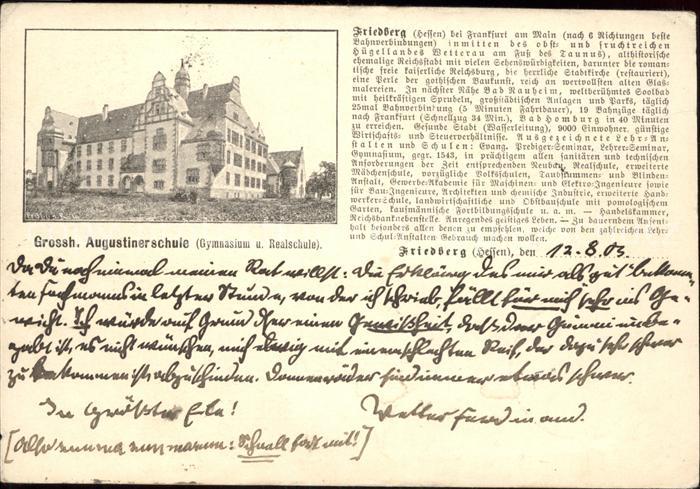 Friedberg (Hessen) bei Frankfurt am Main (nach 6 Richtungen beste
Bahnverbindungen) inmitten des obst- und fruchtreichen
Hügellandes Wetterau am Fuß des Taunus), althistorische
ehemalige Reichsstadt mit vielen Sehenswürdigkeiten, darunter die roman-
tische freie kaiserliche Reichsburg, die herrliche Stadtkirche (restauriert),
eine Perle der gothischen Baukunst, reich an wertvollsten alten Glas-
malereien. In nächster Nähe Bad Nauheim, weltberühmtes Soolbad
mit heilkräftigen Sprudeln, großstädtischen Anlagen und Parks, täglich
25mal Bahnverbindung (5 Minuten Fahrtdauer), 19 Bahnzüge täglich
nach Frankfurt (Schnellzug 34 Min.), Bad Homburg in 40 Minuten
zu erreichen. Gesunde Stadt (Wasserleitung), 9000 Einwohner, günstige
Wirtschafts- und Steuerverhältnisse. Ausgezeichnete Lehr-An-
stalten und Schulen: Evang. Prediger-Seminar, Lehrer-Seminar,
Gymnasium, gegr. 1543, in prächtigem allen sanitären und technischen
Anforderungen der Zeit entsprechenden Neubau, Realschule, erweiterte
Mädchenschule, vorzügliche Volksschulen, Taubstummen- und Blinden-
Anstalt, Gewerbe-Akademie für Maschinen- und Elektro-Ingenieure sowie
für Bau-Ingenieure, Architekten und chemische Industrie, erweiterte Hand-
werker-Schule, landwirtschaftliche und Obstbauschule mit pomologischem
Garten, kaufmännische Fortbildungsschule u. a. m. — Handelskammer,
Reichsbanknebenstelle. Anregendes geistiges Leben. — Zu dauerndem Aufent-
halt besonders allen denen zu empfehlen, welche von den zahlreichen Lehr-
und Schul-Anstalten Gebrauch machen wollen.
Grossh. Augustinerschule (Gymnasium u. Realschule).
Friedberg (Hessen), den 12.8.03
Da Du noch einmal meinen Rat willst: Die Erklärung des mir als gut bekann-
ten Fachmanns in letzter Stunde, von der ich schrieb, fällt für mich sehr ins Ge-
wicht. Ich würde auf Grund der einen Gewissheit, daß der Gummi
ist, es nicht wünschen, mich ewig mit einem schlechten Reif, der dazu sehr schwer
zu bekommen ist abzuschinden. Donnerräder sind immer etwas schwer.
In größter Eile! Vetter Ferdinand.
[Also : Schnell fort mit!]